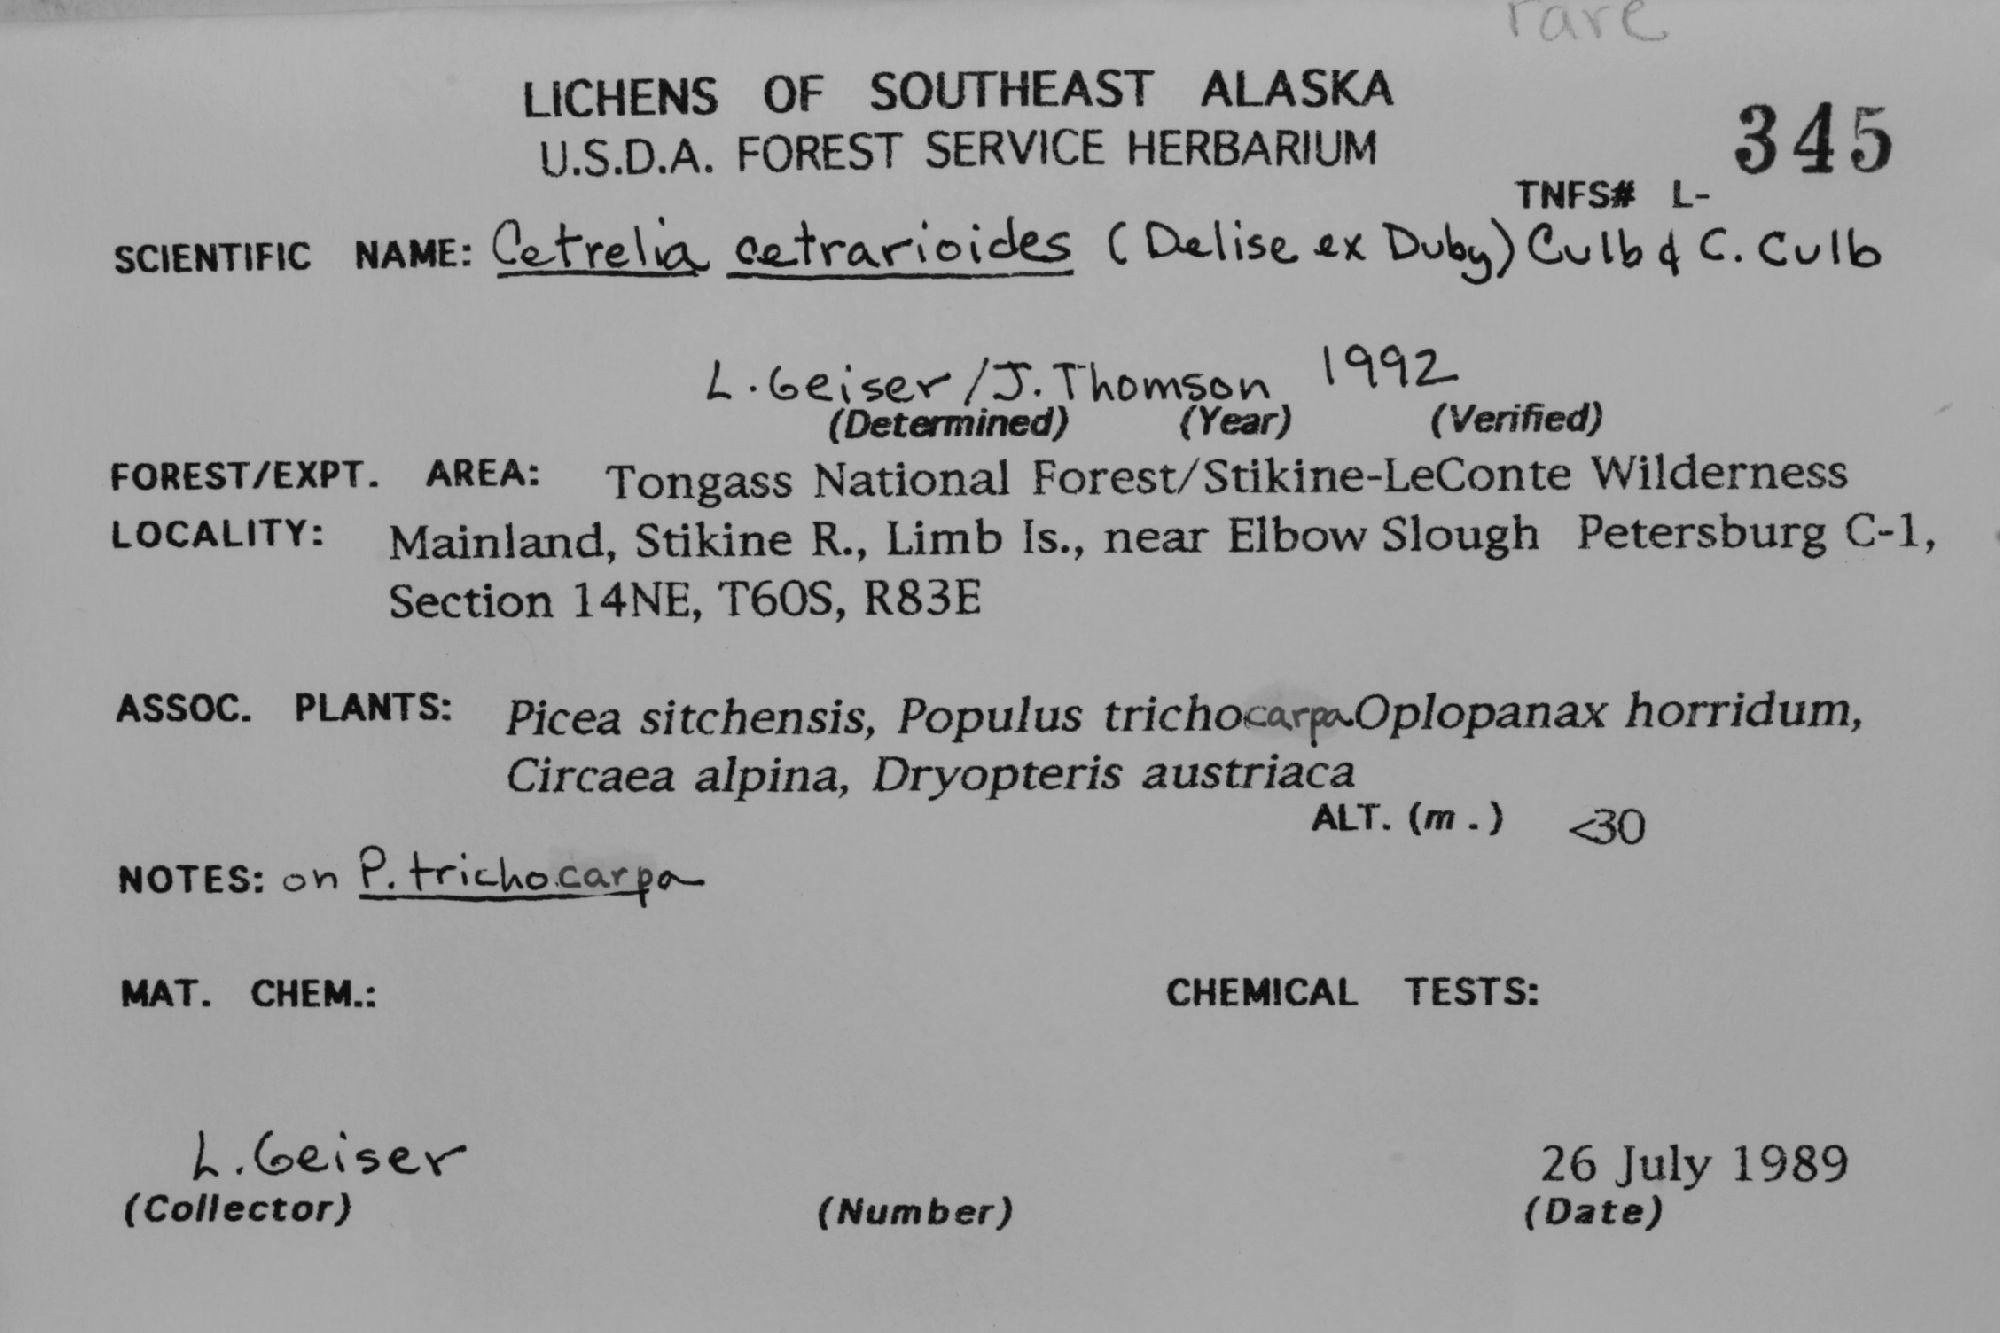 rare
LICHENS OF SOUTHEAST ALASKA
U.S.D.A. FOREST SERVICE HERBARIUM
TNFS# L- 345
SCIENTIFIC NAME: Cetrelia cetrarioides (Delise ex Duby) Culb & C. Culb
L. Geiser/J. Thomson 1992
(Determined) (Year) (Verified)
FOREST/EXPT. AREA: Tongass National Forest/Stikine-LeConte Wilderness
LOCALITY: Mainland, Stikine R., Limb Is., near Elbow Slough Petersburg C-1,
Section 14NE, T60S, R83E
ASSOC. PLANTS: Picea sitchensis, Populus trichocarpa Oplopanax horridum,
Circaea alpina, Dryopteris austriaca
ALT. (m.) <30
NOTES: on P. trichocarpa
MAT. CHEM.: CHEMICAL TESTS:
L. Geiser 26 July 1989
(Collector) (Number) (Date)